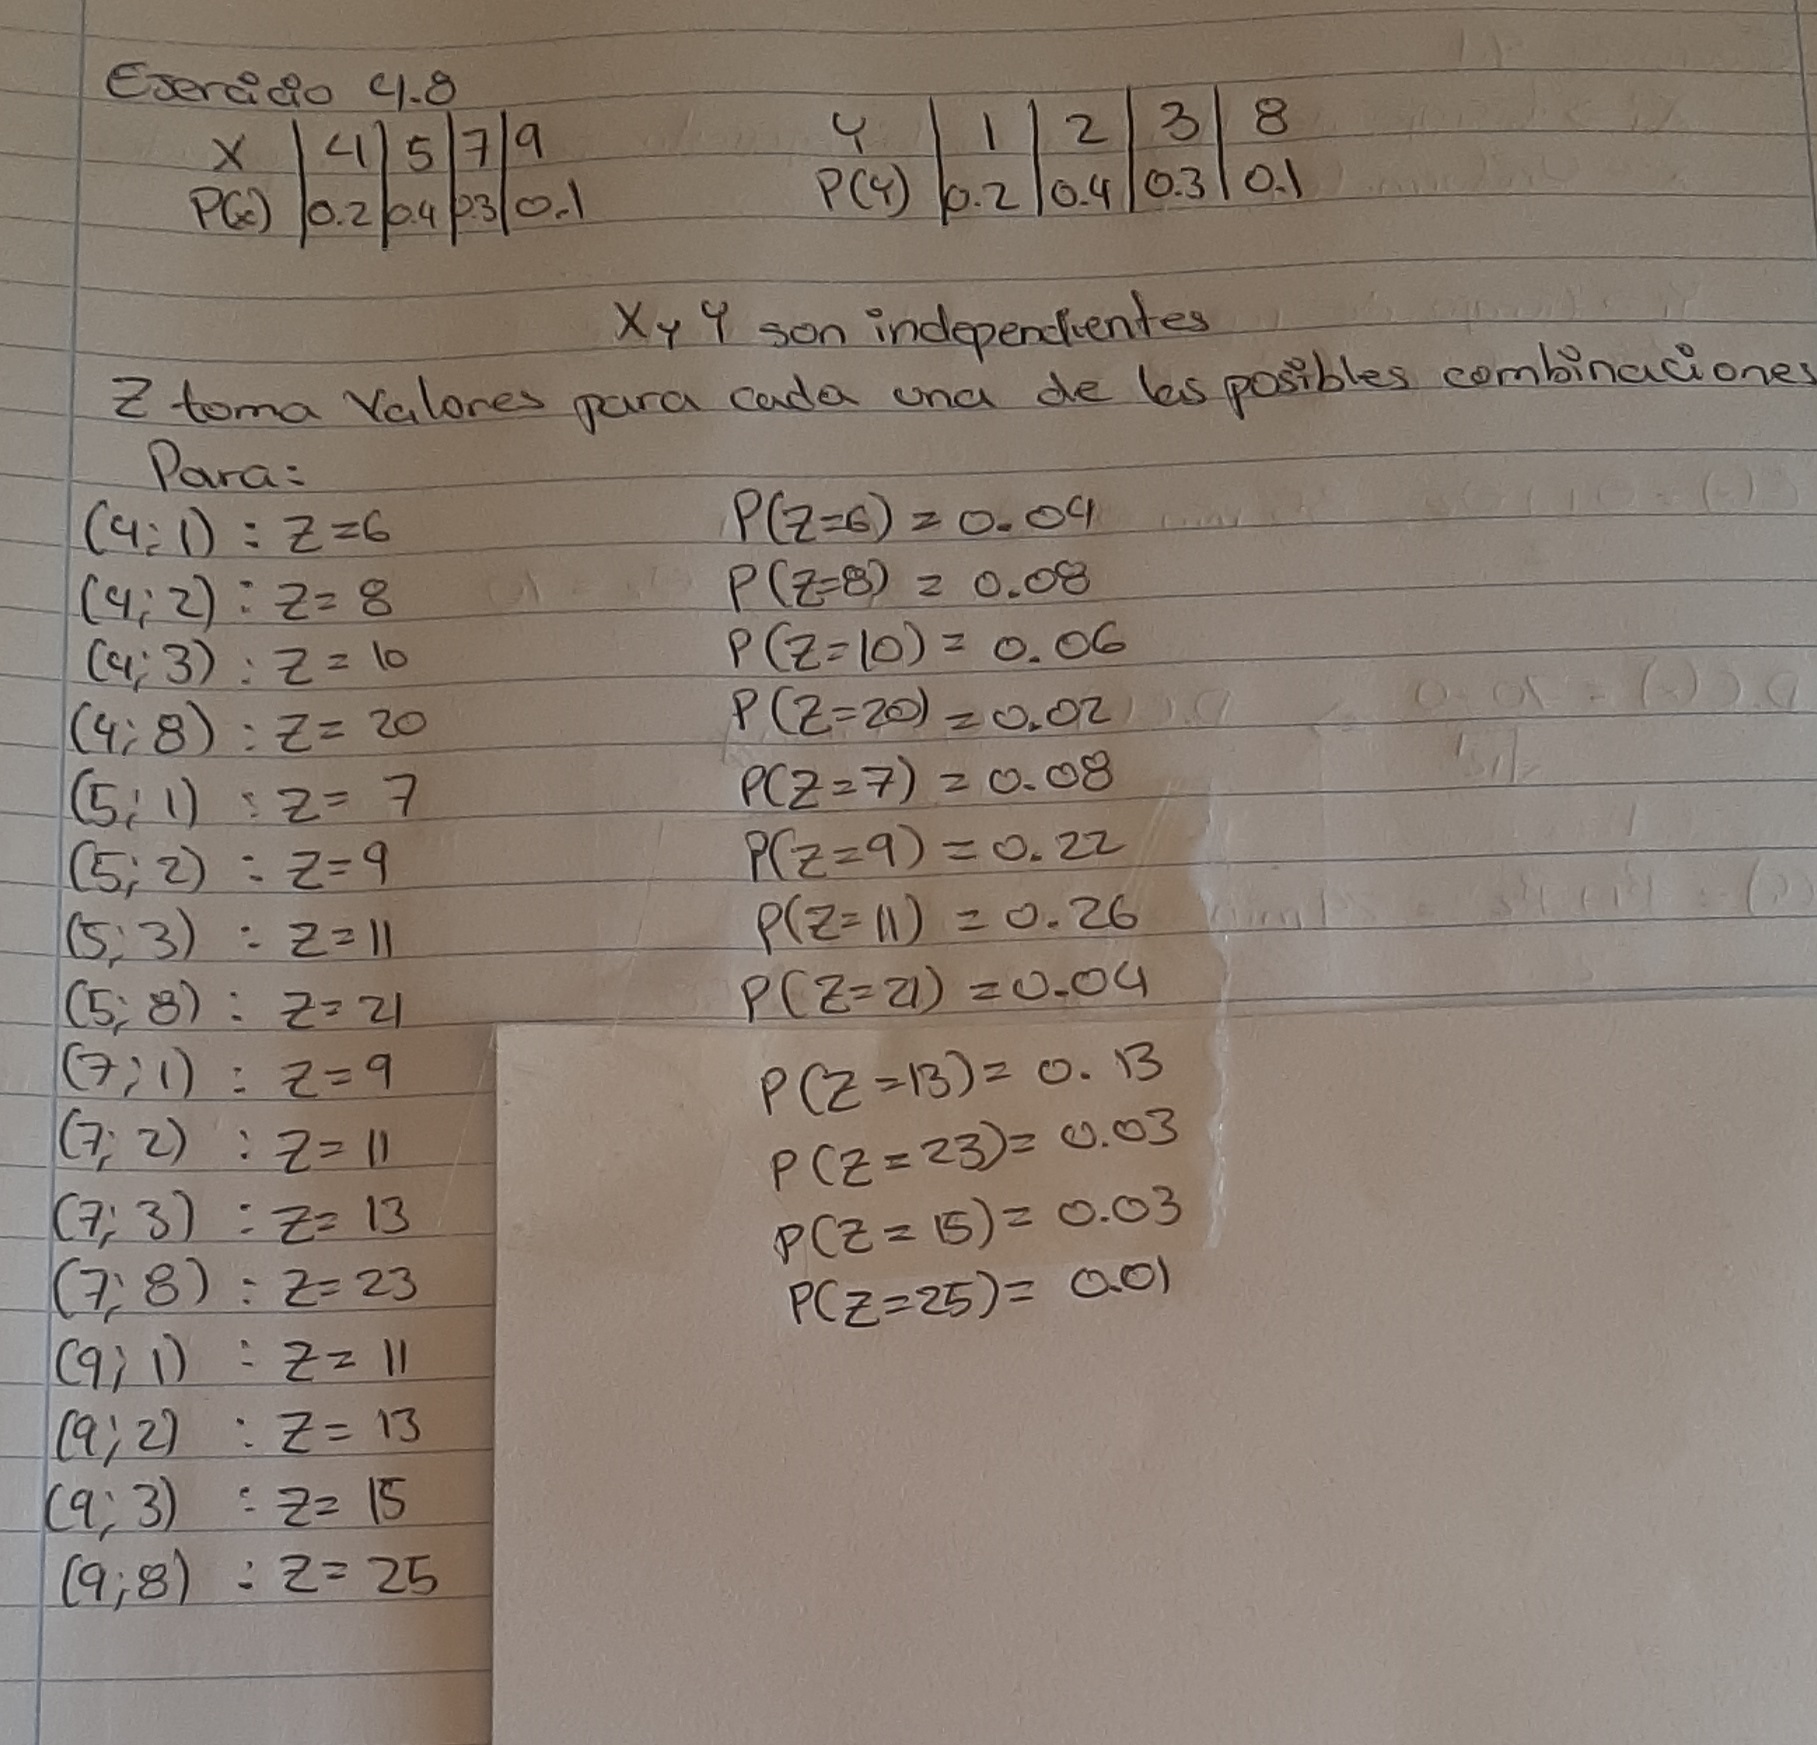 Ejercicio 4.8
X | 4 | 5 | 7 | 9
P(x) | 0.2 | 0.4 | 0.3 | 0.1
Y | 1 | 2 | 3 | 8
P(Y) | 0.2 | 0.4 | 0.3 | 0.1
X y Y son independientes
Z toma valores para cada una de las posibles combinaciones
Para:
(4;1) : Z=6
(4;2) : Z=8
(4;3) : Z=10
(4;8) : Z=20
(5;1) : Z=7
(5;2) : Z=9
(5;3) : Z=11
(5;8) : Z=21
(7;1) : Z=9
(7;2) : Z=11
(7;3) : Z=13
(7;8) : Z=23
(9;1) : Z=11
(9;2) : Z=13
(9;3) : Z=15
(9;8) : Z=25
P(Z=6) = 0.04
P(Z=8) = 0.08
P(Z=10) = 0.06
P(Z=20) = 0.02
P(Z=7) = 0.08
P(Z=9) = 0.22
P(Z=11) = 0.26
P(Z=21) = 0.04
P(Z=13) = 0.13
P(Z=23) = 0.03
P(Z=15) = 0.03
P(Z=25) = 0.01